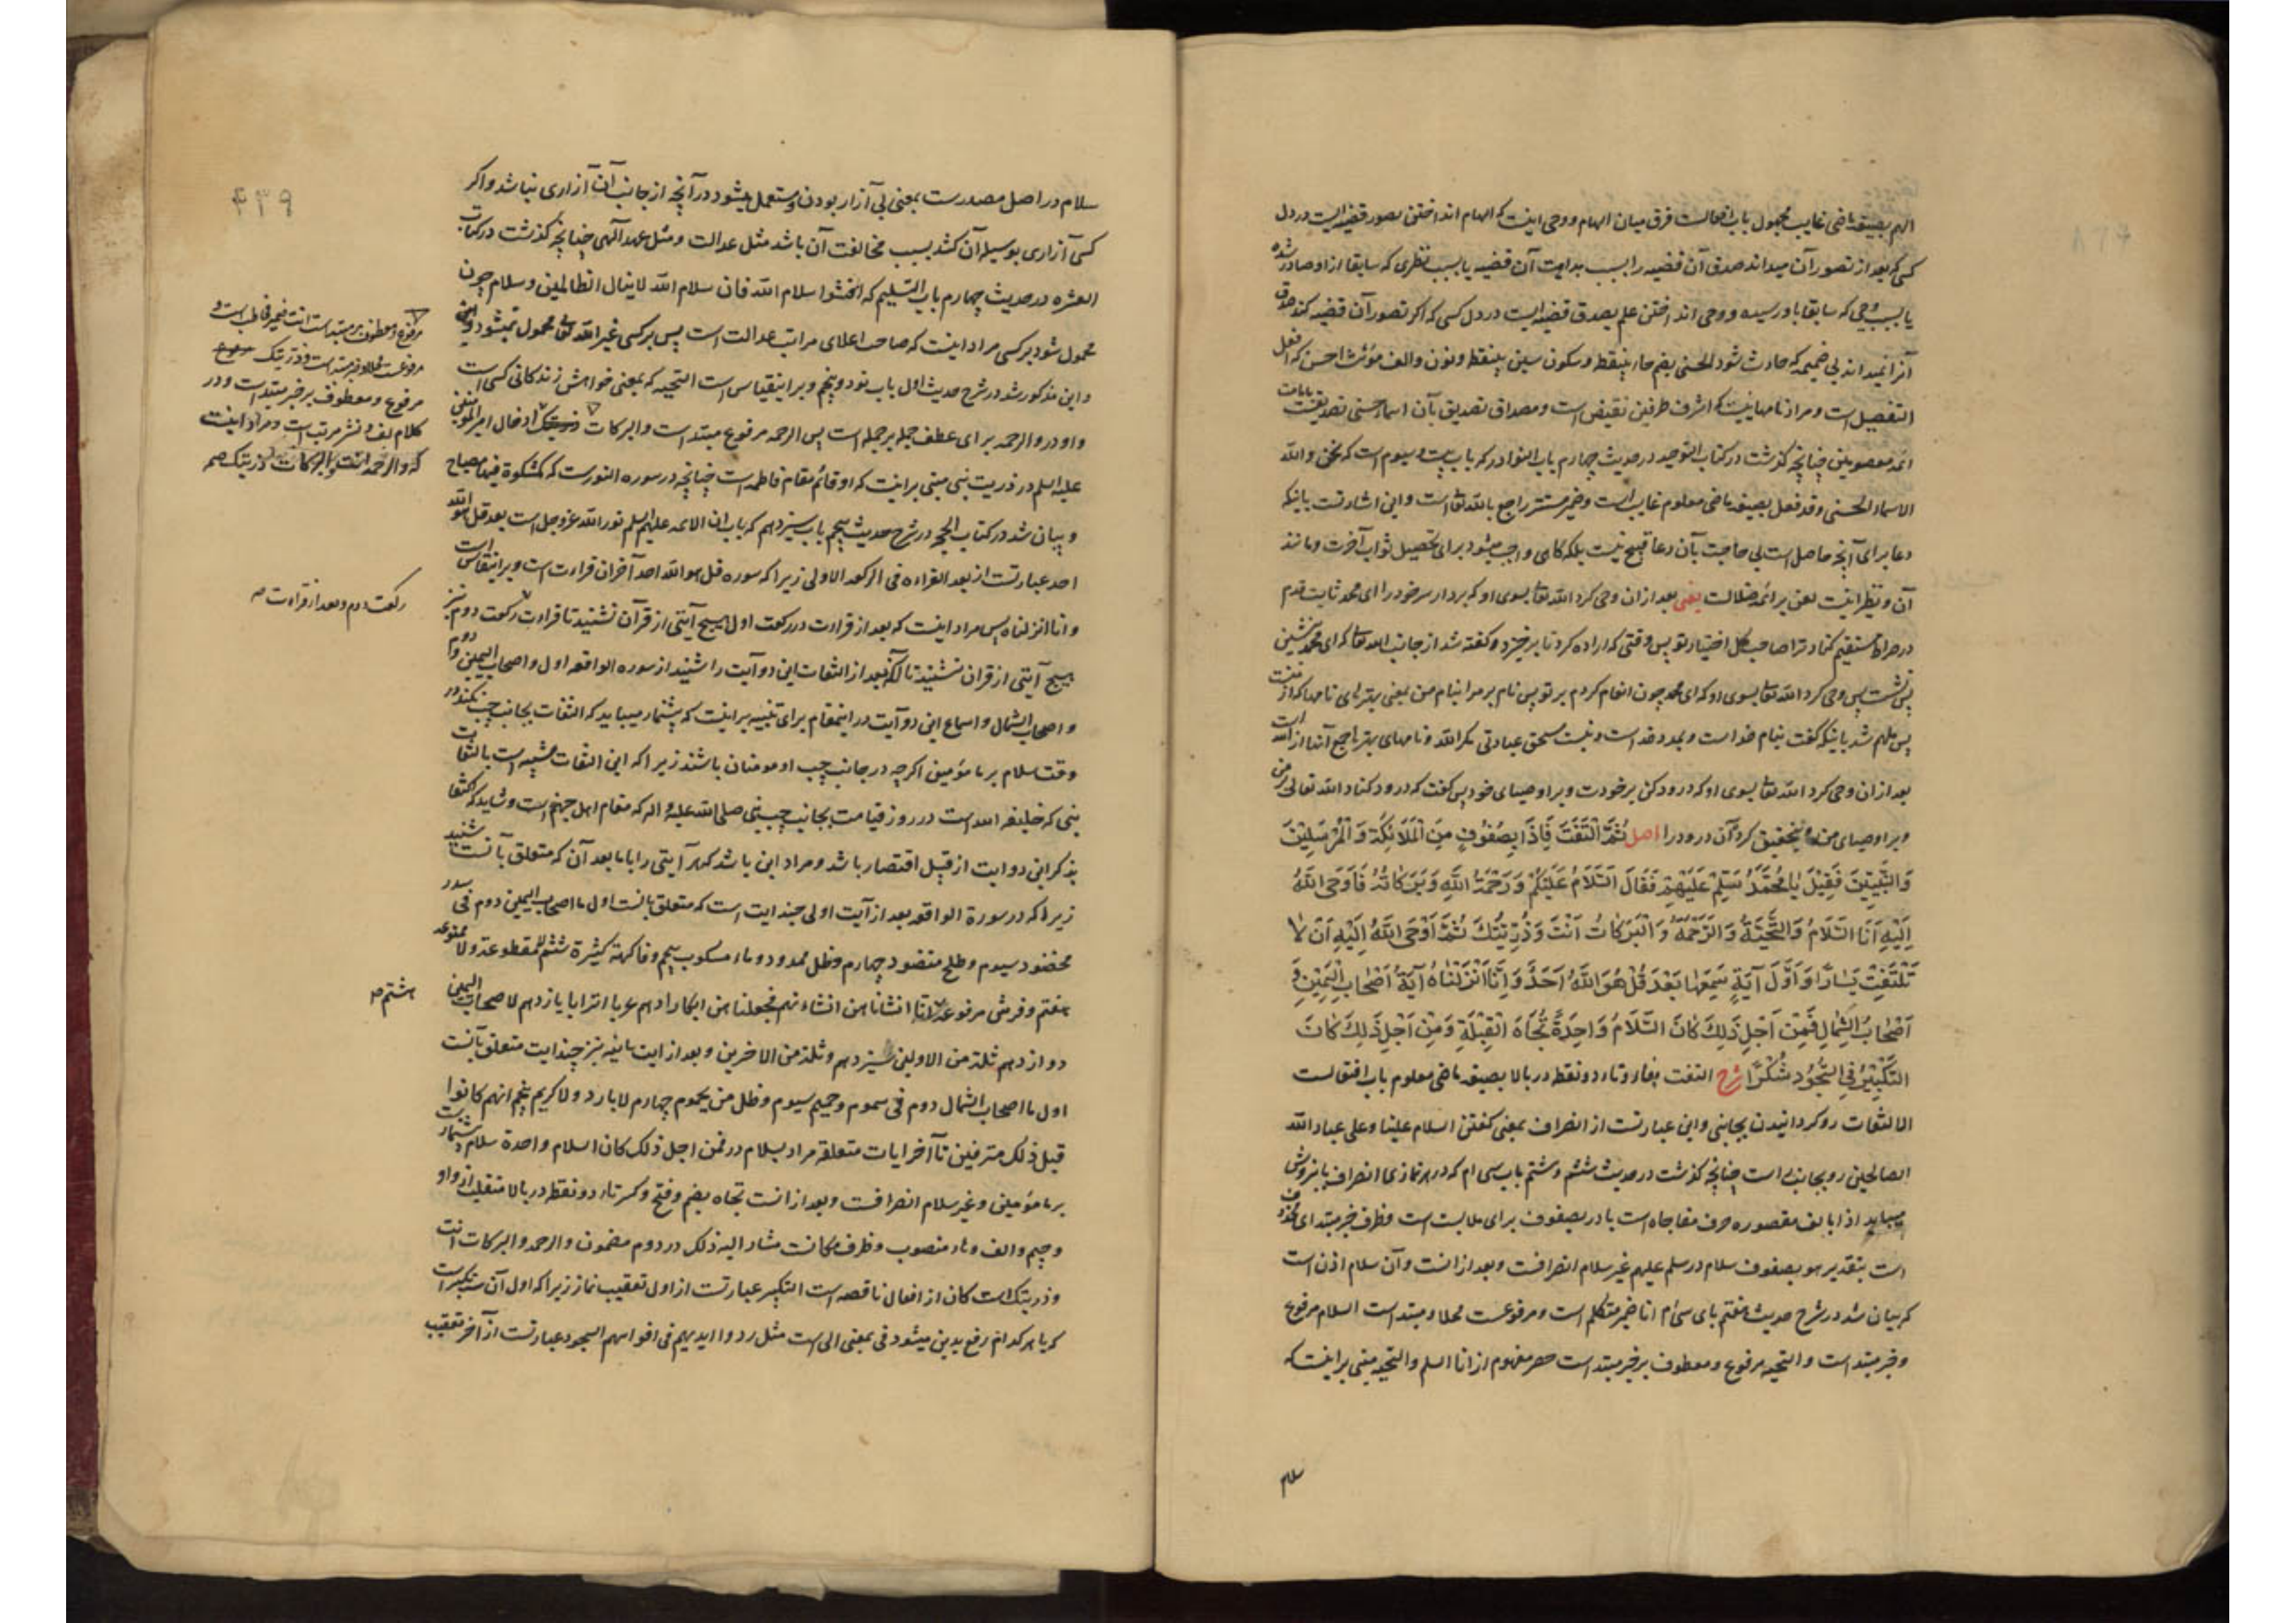 الهم بصیغه ماضی غایب مجهول باب افعالست فرق میان الهام و وحی اینست که الهام انداختن تصور قضیه ایست در دل
کسی که بعد از تصور آن میداند صدق آن قضیه را بسبب بداهت آن قضیه یا بسبب نظری که سابقا از او صادر شده
یا بسبب وحی که سابقا باو رسیده و وحی انداختن علم بصدق قضیه ایست در دل کسی که اگر تصور آن قضیه کند صدق
آنرا نمیداند بی ضمیمه که حادث شود الحسنی بضم حاء بینقطه و سکون سین بینقطه و نون و الف مؤنث احسن که افعل
التفضیل است و مراد نامهاییست که اشرف طرفین نقیض است و مصداق تصدیق بآن اسماء حسنی تصدیقست بامامت
ائمه معصومین چنانچه گذشت در کتاب التوحید در حدیث چهارم باب النوادر که باب بیست و سیوم است که نحن و الله
الاسماء الحسنی و قد فعل بصیغه ماضی معلوم غایب است و ضمیر مستتر راجع بالله تعالی است و این اشارتست باینکه
دعا برای آنچه حاصل است بی حاجت بآن دعا قبیح نیست بلکه گاهی واجب میشود برای تحصیل ثواب آخرت و مانند
آن و نظیر اینست لعن بر ائمه ضلالت یعنی بعد از ان وحی کرد الله تعالی بسوی او که بردار سر خود را ای محمد ثابت قدم
در صراط مستقیم کناد ترا صاحب کل اختیار تو پس وقتی که اراده کرد تا برخیزد و گفته شد از جانب الله تعالی که ای محمد بنشین
پس نشست پس وحی کرد الله تعالی بسوی او که ای محمد چون انعام کردم بر تو پس نام بر مرا بنام من بمعنی بهترهای نامها که از منست
پس ملهم شد باینکه گفت بنام خدا است و بمدد خداست و نیست مستحق عبادتی مگر الله و نامهای بهتر راجع آنها از الله است
بعد از ان وحی کرد الله تعالی بسوی او که درود کن بر خودت و بر اوصیای خود پس گفت که درود کناد الله تعالی بر من
و بر اوصیای من و بتحقیق کرد آن درود را اصل ثُمَّ الْتَفَتَ فَإِذَا بِصُفُوفٍ مِنَ الْمَلَائِكَةِ وَ الْمُرْسَلِينَ
وَ النَّبِيِّينَ فَقِيلَ يَا مُحَمَّدُ سَلِّمْ عَلَيْهِمْ فَقَالَ السَّلَامُ عَلَيْكُمْ وَ رَحْمَةُ اللَّهِ وَ بَرَكَاتُهُ فَأَوْحَى اللَّهُ
إِلَيْهِ أَنَا السَّلَامُ وَ التَّحِيَّةُ وَ الرَّحْمَةُ وَ الْبَرَكَاتُ أَنْتَ وَ ذُرِّيَّتُكَ ثُمَّ أَوْحَى اللَّهُ إِلَيْهِ أَنْ لَا
تَلْتَفِتَ يَسَارًا وَ أَوَّلُ آيَةٍ سَمِعَهَا بَعْدَ قُلْ هُوَ اللَّهُ أَحَدٌ وَ إِنَّا أَنْزَلْنَاهُ آيَةُ أَصْحَابِ الْيَمِينِ وَ
أَصْحَابِ الشِّمَالِ فَمِنْ أَجْلِ ذَلِكَ كَانَ السَّلَامُ وَاحِدَةً تُجَاهَ الْقِبْلَةِ وَ مِنْ أَجْلِ ذَلِكَ كَانَ
التَّكْبِيرُ فِي السُّجُودِ شُكْرًا شرح التفت بفاء و تاء دو نقطه در بالا بصیغه ماضی معلوم باب افتعالست
الالتفات رو گردانیدن بجانبی و این عبارتست از انصراف بمعنی گفتن السلام علینا و علی عباد الله
الصالحین رو بجانب است چنانچه گذشت در حدیث ششم و هشتم باب سی ام که در هر نمازی انصراف بآنروش
میباید اذا بالف مقصوره حرف مفاجاه است با در بصفوف برای ملابست است و ظرف خبر مبتدای محذوف
است بتقدیر هو بصفوف سلام در سلم علیهم غیر سلام انصرافست و بعد از انست و آن سلام اذن است
که بیان شد در شرح حدیث هفتم بای سی ام انا ضمیر متکلم است و مرفوعست محلا و مبتداست السلام مرفوع
و خبر مبتداست و التحیه مرفوع و معطوف بر خبر مبتداست حصر مفهوم از انا السلم و التحیه مبنی بر اینست که
سلام
۴۳۹
سلام در اصل مصدرست بمعنی بی آزار بودن و مستعمل میشود در آنچه از جانب آن آزاری نباشد و اگر
کسی آزاری بوسیله آن کشد بسبب مخالفت آن باشد مثل عدالت و مثل عهد الهی چنانچه گذشت در کتاب
العشره در حدیث چهارم باب التسلیم که افشوا سلام الله فان سلام الله لا ینال الظالمین و سلام چون
محمول شود بر کسی مراد اینست که صاحب اعلای مراتب عدالت است پس بر کسی غیر الله تعالی محمول نمیشود
و این مذکور شد در شرح حدیث اول باب نود و پنجم و بر اینقیاس است التحیه که بمعنی خواهش زندگانی کسی است
واو در و الرحمه برای عطف جمله بر جمله است پس الرحمه مرفوع مبتداست و البرکات ادخال امیر المؤمنین
علیه السلم در ذریت نبی مبنی بر اینست که او قائم مقام فاطمه است چنانچه در سوره النورست که کمشکوة فیها مصباح
و بیان شد در کتاب الحجه در شرح حدیث پنجم باب سیزدهم که باب ان الائمه علیهم السلم نور الله عز و جل است بعد قل هو الله
احد عبارتست از بعد القراءه فی الرکعه الاولی زیرا که سوره قل هو الله احد آخر ان قراءت است و بر اینقیاس است
و انا انزلناه پس مراد اینست که بعد از قراءت در رکعت اول هیچ آیتی از قرآن نشنید تا قراءت رکعت دوم نیز
هیچ آیتی از قران نشنید تا آنکه بعد از التفات این دو آیت را شنید از سوره الواقعه اول و اصحاب الیمین دوم
و اصحاب الشمال و اسماع این دو آیت در اینمقام برای تنبیه بر اینست که پیشنماز میباید که التفات بجانب چپ نکند در
وقت سلام بر مأمومین اگرچه در جانب چپ او مومنان باشند زیرا که این التفات مشبه است بالتفات
نبی که خلیفه الله است در روز قیامت بجانب چپ نبی صلی الله علیه و اله که مقام اهل جهنم است و شاید که اکتفا
بذکر این دو ایت از قبیل اقتصار باشد و مراد این باشد که هر آیتی را با ما بعد آن که متعلق بآنست شنید
زیرا که در سورة الواقعه بعد از آیت اولی چند ایت است که متعلق بانست اول ما اصحاب الیمین دوم فی سدر
مخضود سیوم و طلح منضود چهارم و ظل ممدود و ماء مسکوب پنجم و فاکهة کثیرة ششم لا مقطوعة و لا ممنوعه
هفتم و فرش مرفوعه انا انشاناهن انشاء نهم فجعلناهن ابکارا دهم عربا اترابا یازدهم لاصحاب الیمین
دوازدهم ثلة من الاولین سیزدهم و ثلة من الاخرین و بعد از ایت ثانیه نیز چند ایت متعلق بآنست
اول ما اصحاب الشمال دوم فی سموم و حمیم سیوم و ظل من یحموم چهارم لا بارد و لا کریم پنجم انهم کانوا
قبل ذلک مترفین تا آخر ایات متعلقه مراد بسلام در فمن اجل ذلک کان السلام واحدة سلام پیشنماز است
بر مأمومین و غیر سلام انصرافست و بعد از انست تجاه بضم و فتح و کسر تاء دو نقطه در بالا منقلب از واو
و جیم و الف و هاء منصوب و ظرف مکانست مشار الیه ذلک در دوم مضمون و الرحمه و البرکات انت
و ذریتک است کان از افعال ناقصه است التکبیر عبارتست از اول تعقیب نماز زیرا که اول آن سه تکبیر است
که با هر کدام رفع یدین میشود فی بمعنی الی است مثل ردوا ایدیهم فی افواههم السجود عبارتست از آخر تعقیب
مرفوع و معطوف بر مبتداست انت ضمیر مخاطب است و
مرفوعست محلا و خبر مبتداست و ذریتک
مرفوع و معطوف بر خبر مبتداست و در
کلام لف و نشر مرتب است و مراد اینست
که و الرحمه انت و البرکات ذریتک صح
رکعت دوم و بعد از قراءت صح
هشتم صح